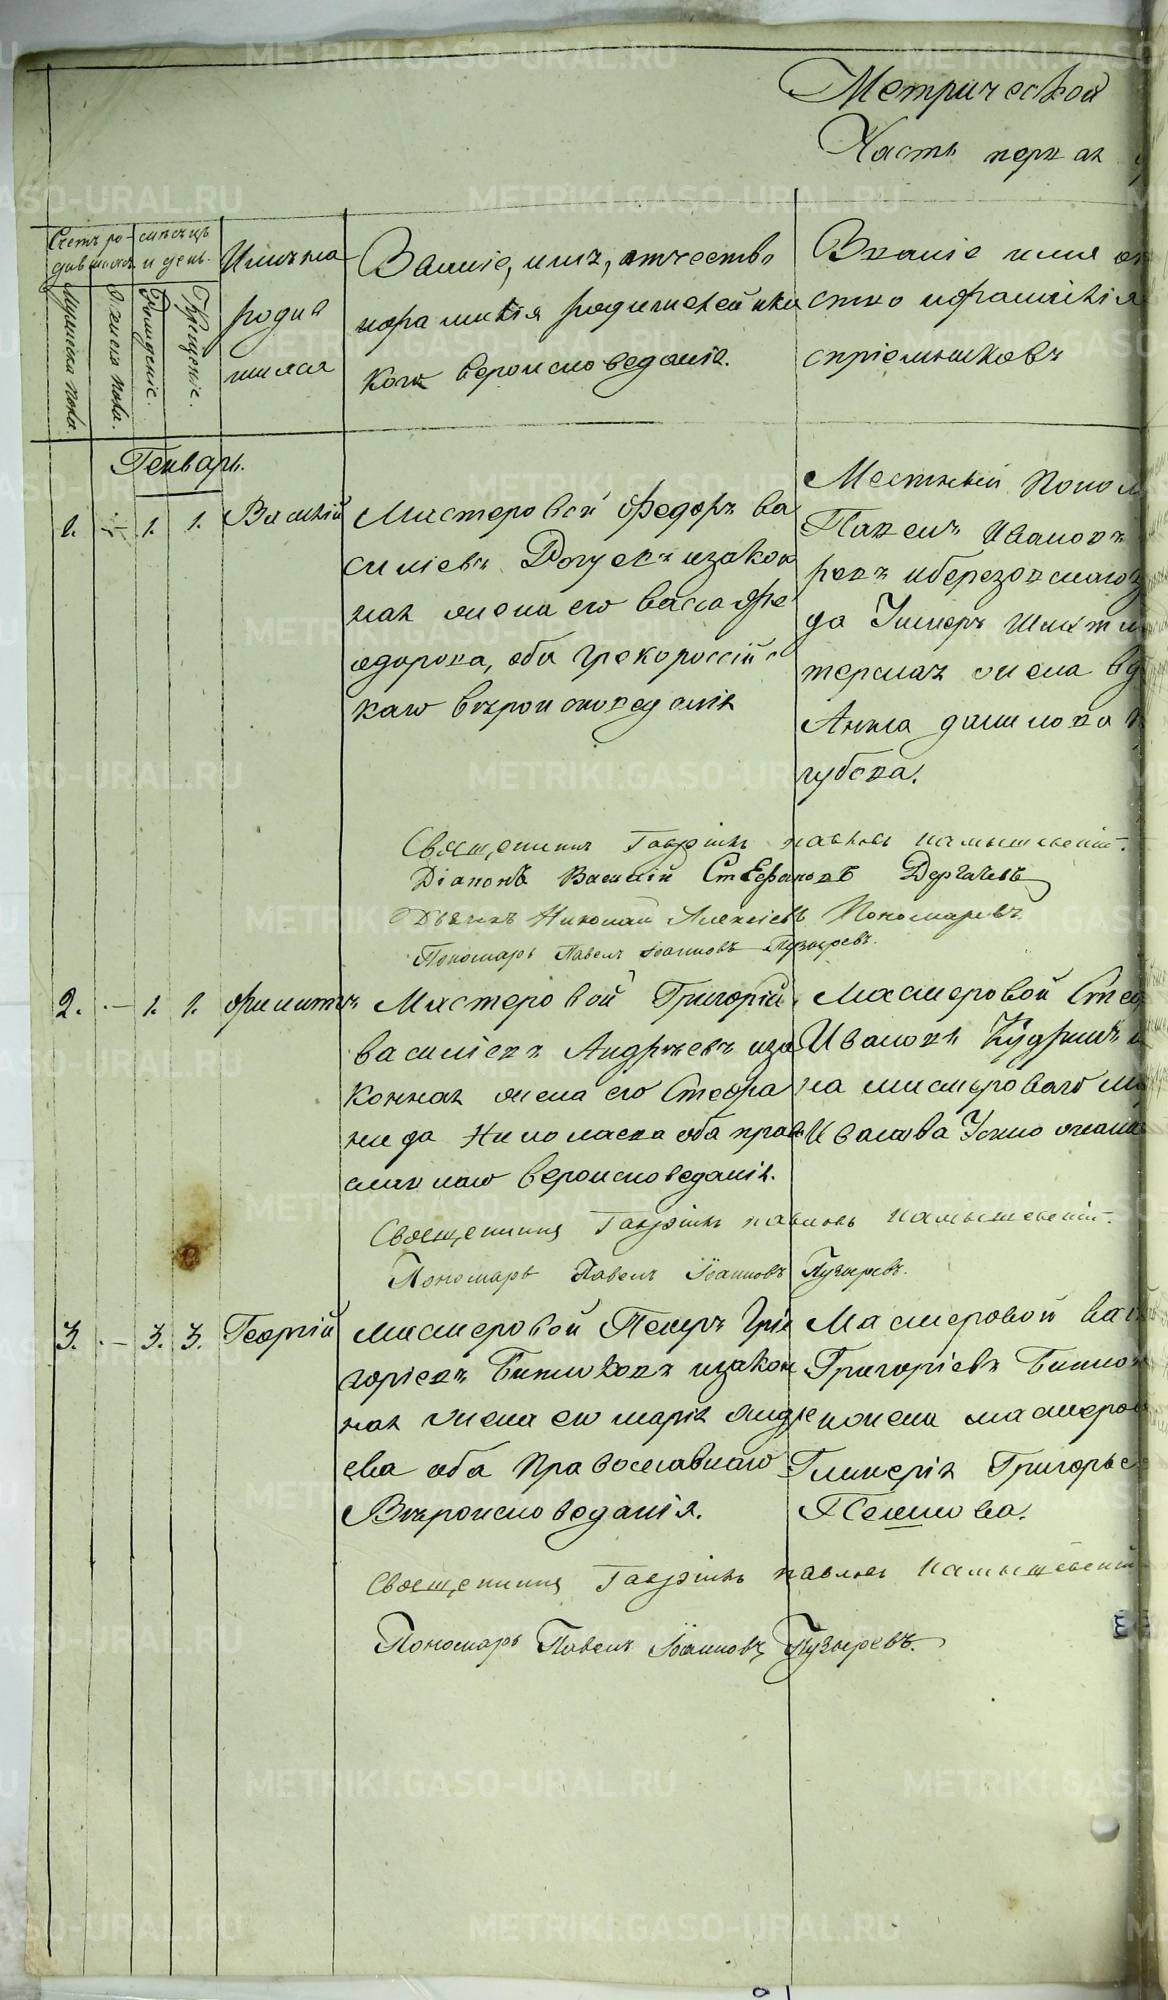 Метрической
Часть первая
Счетъ ро-
дившихся
Мужеска пола.
Женска пола.
мѣсяцъ
и день.
Рожденіе.
Крещеніе.
Имена
родив
шихся
Званіе, имя, отчество
и фамилія родителей и ка
кого вероисповеданія.
Званіе имя от
ство и фамилія
воспріемниковъ
Генварь.
1. 1. 1. Василій
Мастеровой Федоръ Ва
силіевъ и закон
ная жена его Васса Фе
одорова, оба Грекороссійс
каго вѣроисповеданія
Местный Поном
Павелъ Ивановъ
ревъ и березовскаго
да Унтеръ Шихтм
жена вд
Анна Данилова
губова.
Священникъ Гавріилъ Павловъ Камышевскій.
Діаконъ Василій Стефановъ Дергачевъ
Дьячекъ Николай Алексіевъ Пономаревъ
Пономарь Павелъ Іоанновъ Пузыревъ.
2. — 1. 1. Филиппъ
Мастеровой Григорій
Василіевъ Андреевъ и за
конная жена его Стефа
нида Николаева оба права
славнаго вероисповеданія.
Мастеровой Сте
Ивановъ Кудринъ и
на мастероваго
Иванова жена
Священникъ Гавріилъ Павловъ Камышевскій.
Пономарь Павелъ Іоанновъ Пузыревъ.
3. — 3. 3. Георгій
Мастеровой Петръ Гри
горіевъ и закон
ная жена его Марія Андре
ева оба Православнаго
Вѣроисповеданія.
Мастеровой Вас
Григоріевъ
и жена мастеров
Гликерія Григорье
Священникъ Гавріилъ Павловъ Камышевскій
Пономарь Павелъ Іоанновъ Пузыревъ.
METRIKI.GASO-URAL.RU